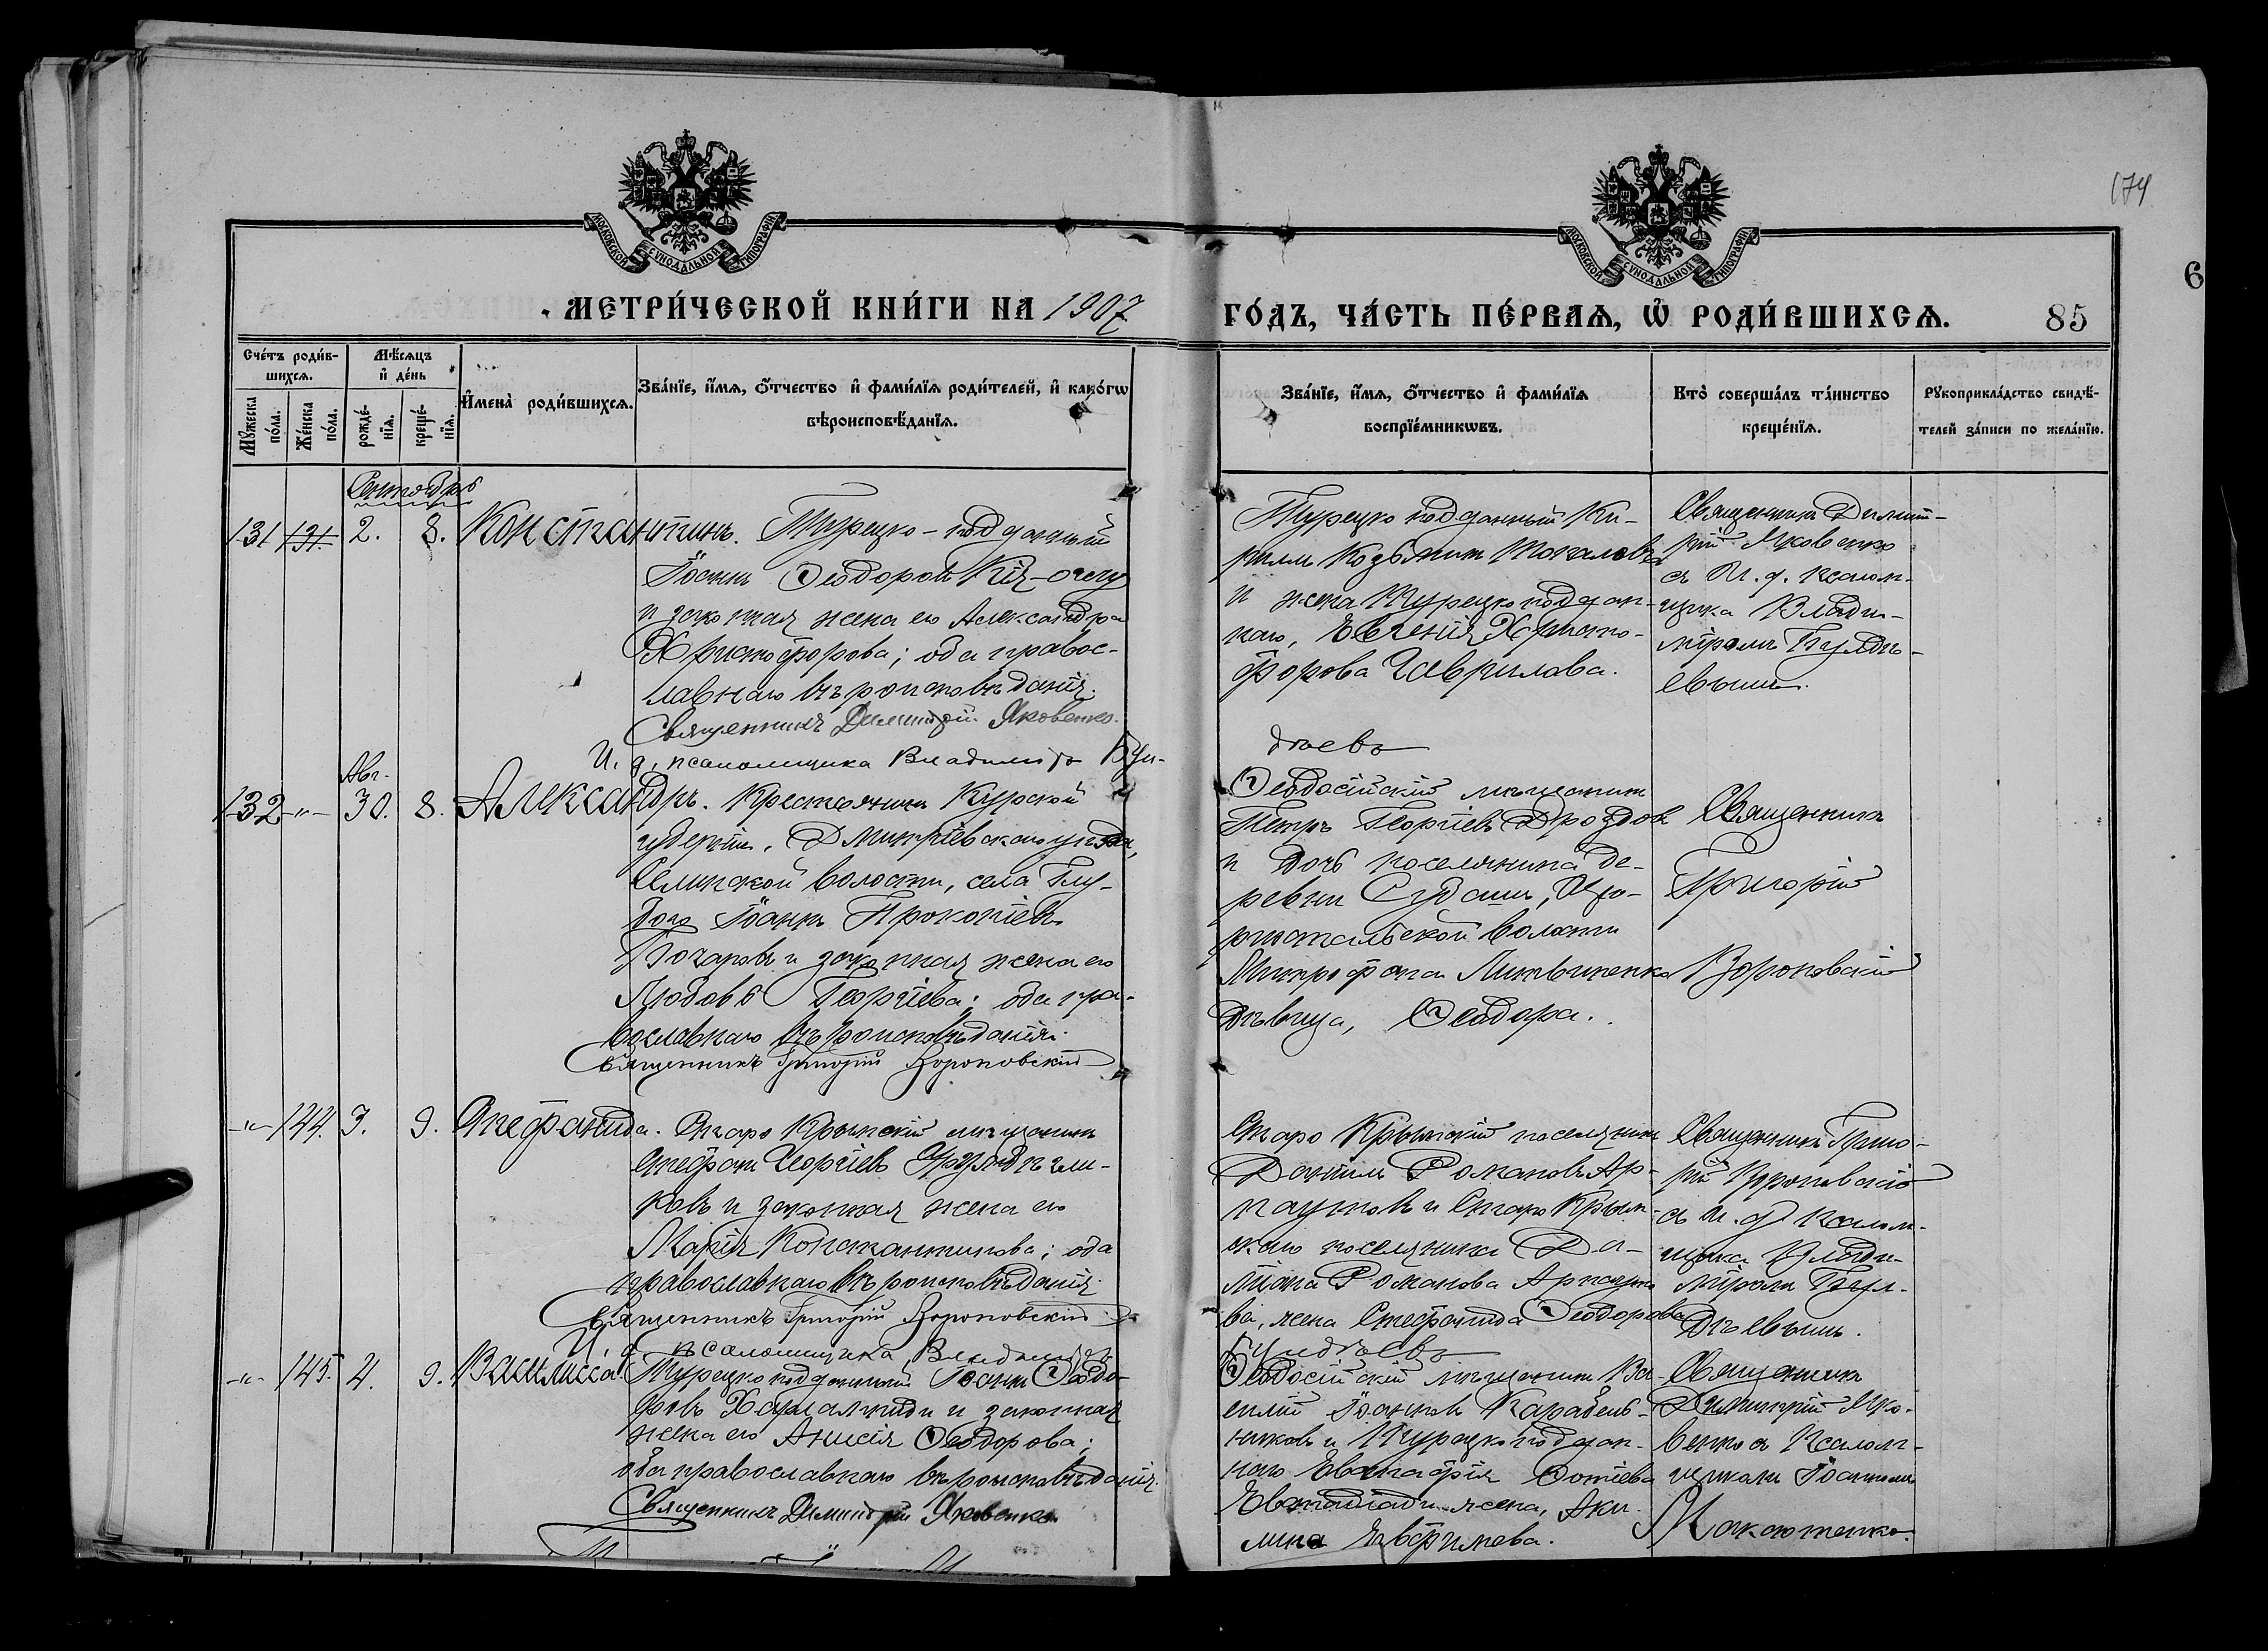 174
6
МОСКОВСКОЙ СУНОДАЛЬНОЙ ТИПОГРАФИИ
МОСКОВСКОЙ СУНОДАЛЬНОЙ ТИПОГРАФИИ
МЕТРИ́ЧЕСКОЙ КНИ́ГИ НА 1907
ГО́ДЪ, ЧА́СТЬ ПЕ́РВАѦ, Ѡ҆ РОДИ́ВШИХСѦ.
85
Сче́тъ роди́в-
шихсѧ.
Мꙋ́жеска
по́ла.
Же́нска
по́ла.
Мѣ́сѧцъ
и҆ де́нь
рожде́-
нїѧ.
креще́-
нїѧ.
И҆мена̀ роди́вшихсѧ.
Зва́нїе, и҆́мѧ, ѻ҆́тчество и҆ фами́лїѧ роди́телей, и҆ како́гѡ
вѣроисповѣ́данїѧ.
Зва́нїе, и҆́мѧ, ѻ҆́тчество и҆ фами́лїѧ
воспрїе́мникѡвъ.
Кто̀ соверша́лъ та́инство
креще́нїѧ.
Рꙋкоприкла́дство свидѣ́-
телей за́писи по жела́нїю.
Сентябрь
131 131. 2. 8. Константинъ. Турецко-подданный
Іоаннъ Ѳеодоровъ
и законная жена его Александра
Христофорова; оба правос-
лавнаго вѣроисповѣданія.
Священникъ Димитрій Яковенко.
И. д. псаломщика Владиміръ
Турецко подданный Ки-
риллъ Козьминъ Токаловъ
и жена Турецко поддан-
наго, Евгенія Христо-
форова Гаврилова.
Священникъ Димит-
рій Яковенко
съ И. д. псалом-
щика Влади-
міромъ
евымъ.
Авг.
132 -"- 30. 8. Александръ. Крестьянинъ Курской
губерніи, Дмитріевскаго уѣзда,
Селинской волости, села
Іоаннъ Прокопіевъ
Бочаровъ и законная жена его
Любовь Георгіева; оба пра-
вославнаго вѣроисповѣданія.
Священникъ Григорій Вороновскій
Ѳеодосійскій мѣщанинъ
Петръ Георгіевъ Дроздовъ
и дочь поселянина де-
ревни Судашъ, Цю-
рихтальской волости
Митрофана Литвиненко
дѣвица, Ѳеодора.
Священникъ
Григорій
Вороновскій
-"- 144. 3. 9. Стефанида. Старо Крымскій мѣщанинъ
Стефанъ Георгіевъ
ковъ и законная жена его
Марія Константинова; оба
православнаго вѣроисповѣданія.
Священникъ Григорій Вороновскій
И. д. псаломщика Владиміръ
Старо Крымскій поселянинъ
Даніилъ Романовъ Ар-
наутовъ и Старо Крым-
скаго поселянина Да-
Романова Арнауто
ва, жена Стефанида Ѳеодорова
Священникъ Григо-
рій Вороновскій
съ И. д. псалом-
щика Влади-
міромъ
евымъ.
-"- 145. 4. 9. Василисса. Турецко подданный Іоаннъ Ѳеодо-
ровъ Харлампиди и законная
жена его Анисія Ѳеодорова;
оба православнаго вѣроисповѣданія.
Священникъ Димитрій Яковенко
Ѳеодосійскій мѣщанинъ Ва-
силій Іоанновъ
и Турецко поддан-
наго Фотіева
жена, Аки-
лина Евфимева.
Священникъ
Димитрій Яко-
венко съ Псалом-
щикомъ Іоанномъ
Макаренко.